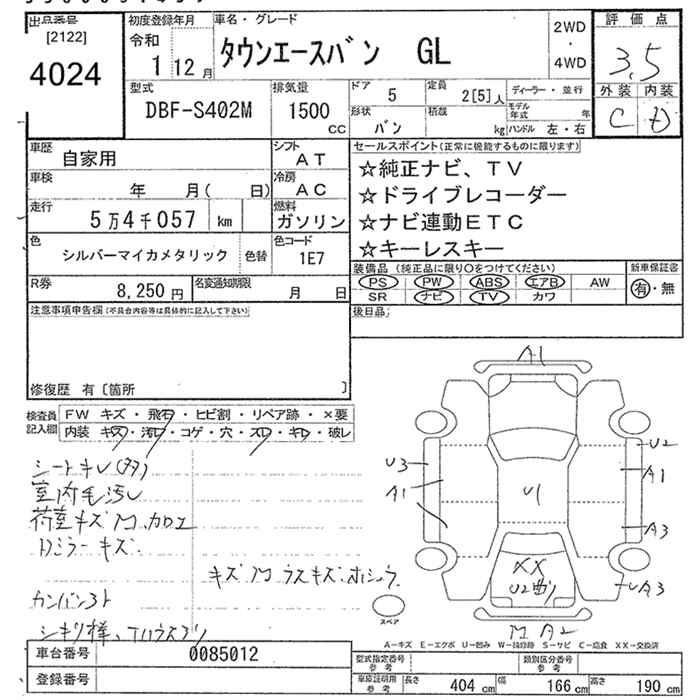 出品番号
[2122]
4024
初度登録年月
令和
1 12月
車名・グレード
タウンエースバン GL
2WD
・
4WD
評価点
3.5
外装 内装
C D
型式
DBF-S402M
排気量
1500
CC
ドア
5
定員
2[5]人
ディーラー・並行
形状
バン
積載
kg
モデル年式
年
ハンドル 左・右
車歴
自家用
シフト
AT
車検
年 月( 日)
冷房
AC
走行
5万4千057 km
燃料
ガソリン
色
シルバーマイカメタリック
色替
色コード
1E7
R券
8,250円
名変通知期限
月 日
セールスポイント(正常に機能するものに限ります)
☆純正ナビ、TV
☆ドライブレコーダー
☆ナビ連動ETC
☆キーレスキー
装備品 (純正品に限り○をつけてください)
PS PW ABS エアB AW
SR ナビ TV カワ
新車保証書
有・無
後日品;
注意事項申告欄(不具合内容等は具体的に記入して下さい)
修復歴 有〔箇所 〕
検査員記入欄
FW キズ・飛石・ヒビ割・リペア跡・×要
内装 キズ・汚れ・コゲ・穴・スレ・キレ・破レ
シートキレ(タバ)
室内毛汚レ
荷室キズ M カロエ
ドミラーキズ
キズ M ウスキズ ホシュウ
カンバン3ト
A1
U3
A1
U1
U2
A1
A3
A3
XX
U2曲り
M A2
スペア
A-キズ E-エクボ U-凹み W-補修跡 S-サビ C-腐食 XX-交換済
車台番号
0085012
登録番号
型式指定番号
参考
類別区分番号
参考
車庫証明用
参考
長さ 404 cm 幅 166 cm 高さ 190 cm